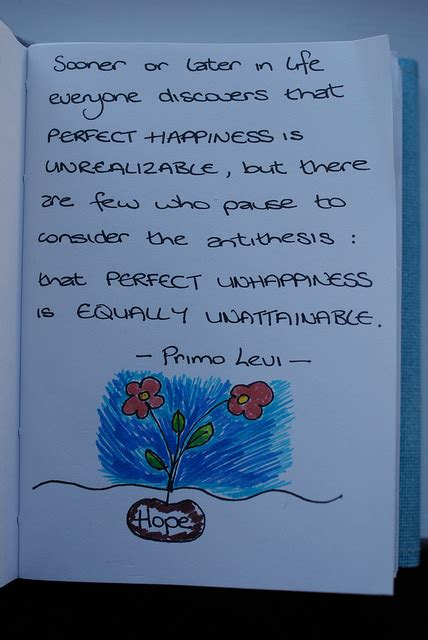 Sooner or later in life
everyone discovers that
PERFECT HAPPINESS is
UNREALIZABLE, but there
are few who pause to
consider the antithesis :
that PERFECT UNHAPPINESS
is EQUALLY UNATTAINABLE.
- Primo Levi -
Hope